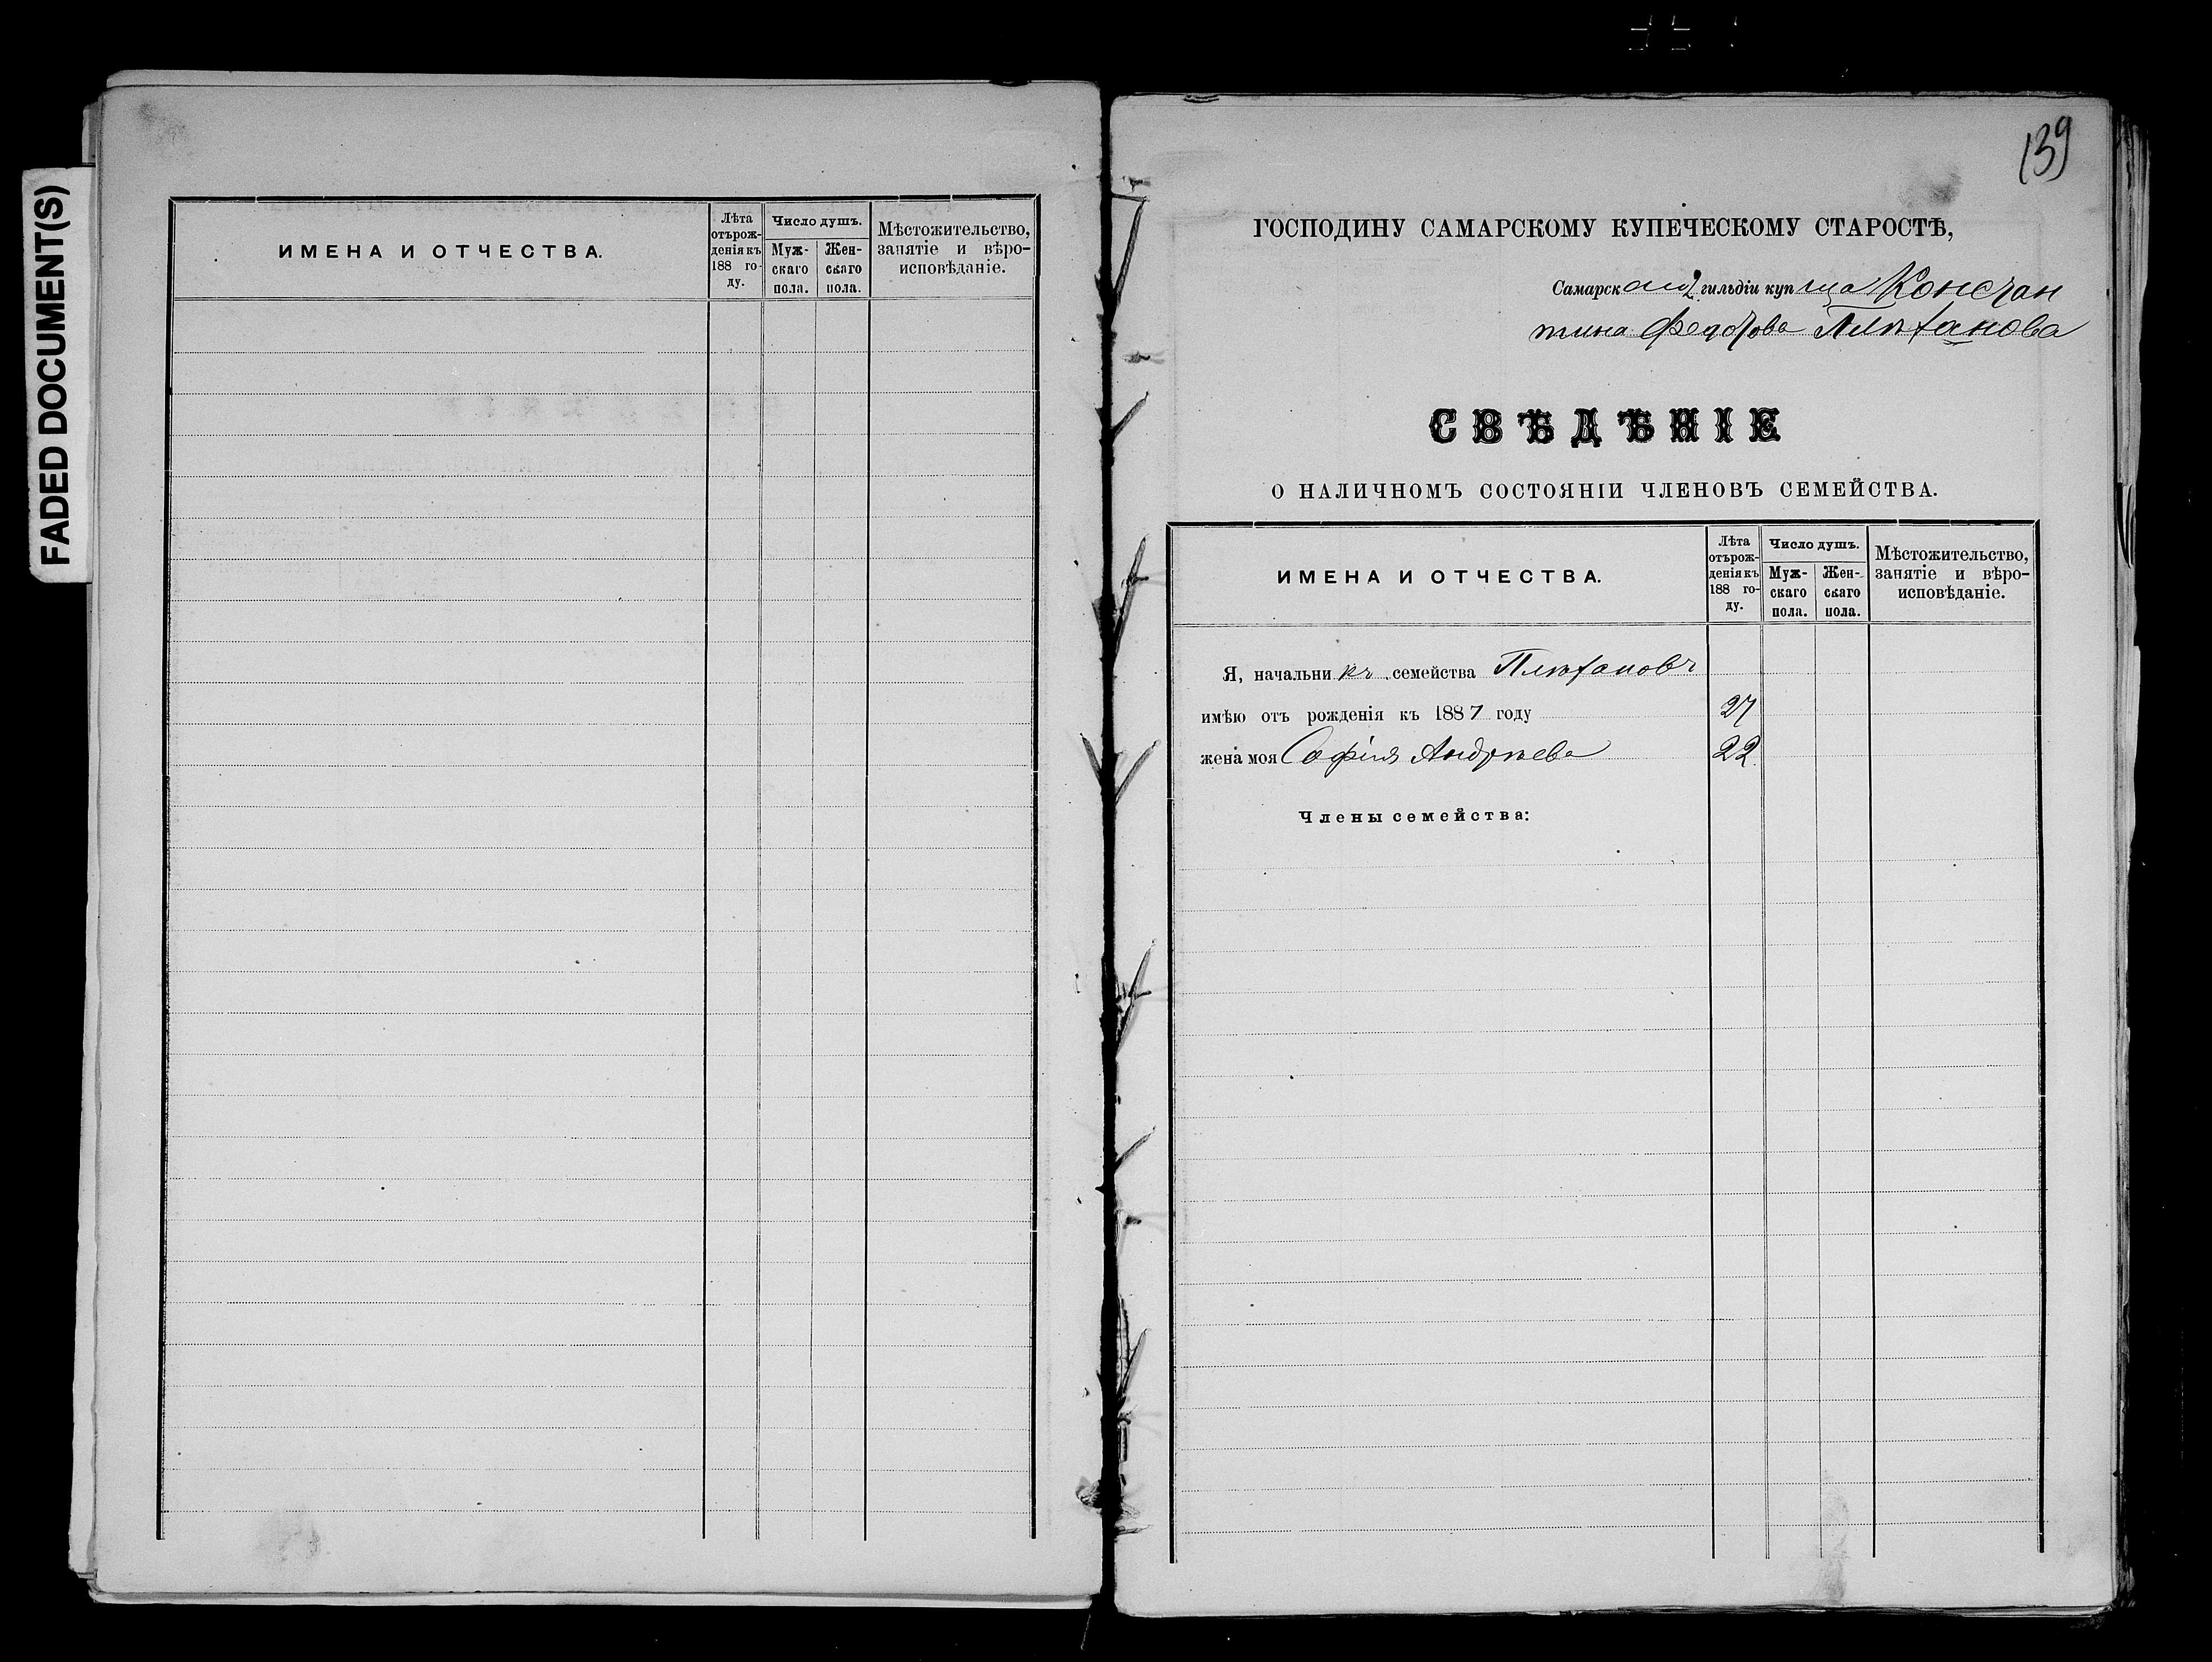 FADED DOCUMENT(S)
ИМЕНА И ОТЧЕСТВА.
Лѣта
отъ рож-
денія къ
188 го-
ду.
Число душъ.
Муж-
скаго
пола.
Жен-
скаго
пола.
Мѣстожительство,
занятіе и вѣро-
исповѣданіе.
139
ГОСПОДИНУ САМАРСКОМУ КУПЕЧЕСКОМУ СТАРОСТѢ,
Самарскаго 2 гильдіи купца Констан
тина Федорова Плѣханова
СВѢДѢНІЕ
О НАЛИЧНОМЪ СОСТОЯНІИ ЧЛЕНОВЪ СЕМЕЙСТВА.
ИМЕНА И ОТЧЕСТВА.
Лѣта
отъ рож-
денія къ
188 го-
ду.
Число душъ.
Муж-
скаго
пола.
Жен-
скаго
пола.
Мѣстожительство,
занятіе и вѣро-
исповѣданіе.
Я, начальникъ семейства Плѣхановъ
имѣю отъ рожденія къ 1887 году 27
жена моя Софія Андрѣева 22
Члены семейства: